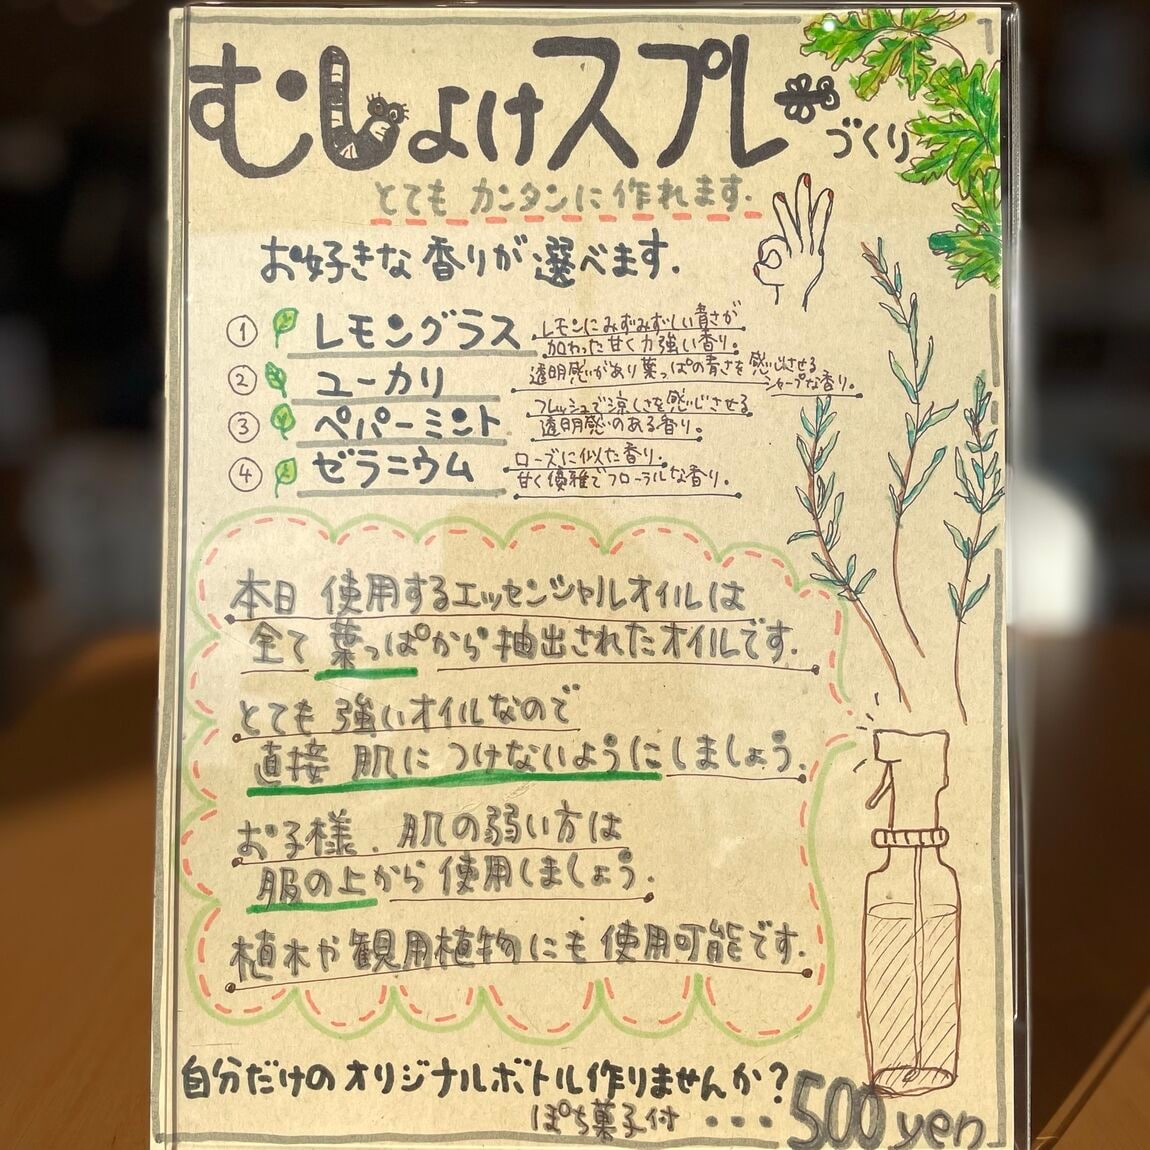 むしよけスプレー
づくり
とても カンタンに作れます.
お好きな香りが選べます.
① レモングラス
レモンにみずみずしい青さが
加わった甘く力強い香り。
② ユーカリ
透明感があり葉っぱの青さを感じさせる
シャープな香り。
③ ペパーミント
フレッシュで涼しさを感じさせる
透明感のある香り。
④ ゼラニウム
ローズに似た香り.
甘く優雅でフローラルな香り.
本日 使用するエッセンシャルオイルは
全て 葉っぱから 抽出されたオイルです.
とても 強いオイルなので
直接 肌に つけないように しましょう.
お子様. 肌の弱い方は
服の上から 使用しましょう.
植木や観用植物にも 使用可能です.
自分だけのオリジナルボトル作りませんか?
ぽち菓子付 ・・・500yen